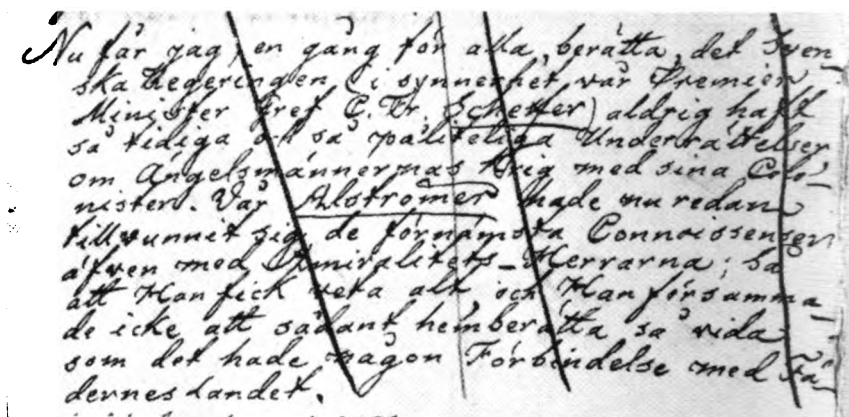 Nu får jag, en gång för alla, berätta, det Sven-
ska Regeringen (i synnerhet vår Premier
Minister Gref C. Fr. Scheffer) aldrig haft
så tidiga och så påliteliga Underrättelser
om Ängelsmännernas Krig med sina Colo-
nister. Vår Alströmer hade nu redan
tillvunnit sig de förnämsta Connoissencer
äfven med Amiralitets-Herrarna; så
att Han fick veta alt, och Han försumma-
de icke att sådant hemberätta så vida
som det hade någon Förbindelse med Fä-
derneslandet.